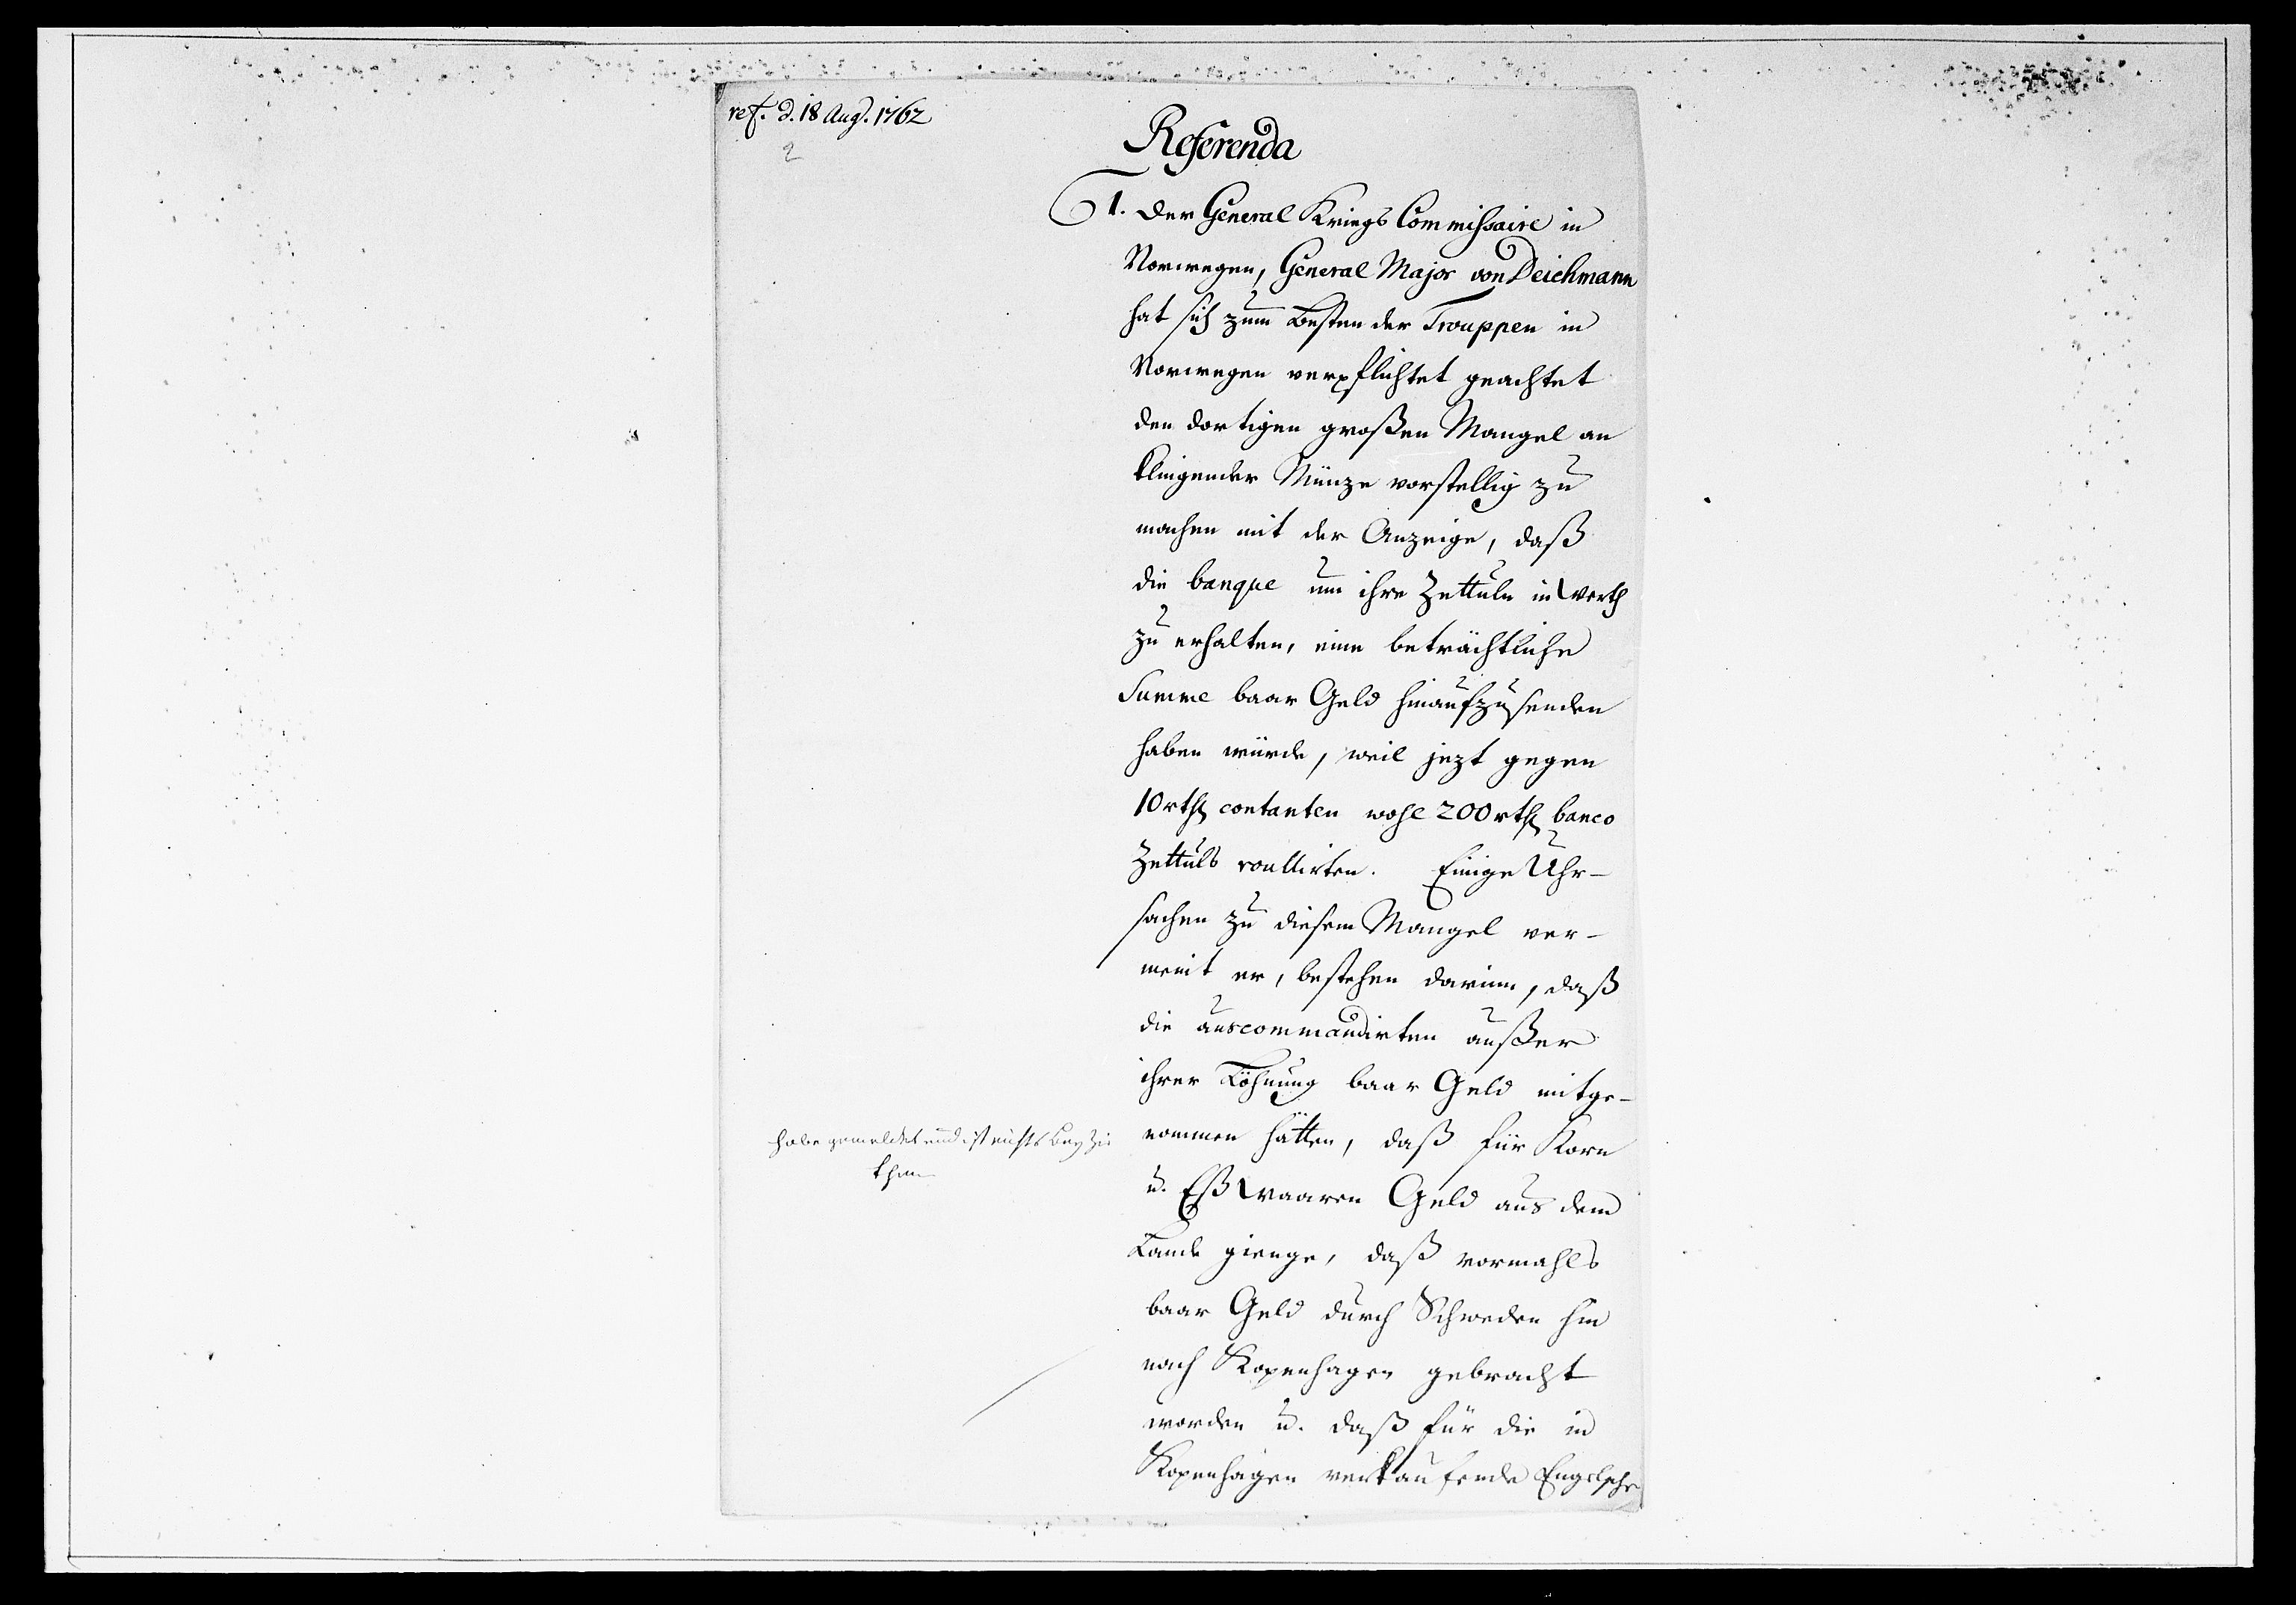 ref. d. 18 Aug. 1762
2
Referenda
1. Der General Kriegs Commissaire in
Norwegen, General Major von Deichmann
hat sich zum Besten der Trouppen in
Norwegen verpflichtet geachtet
den dortigen großen Mangel an
klingender Münze vorstellig zu
machen mit der Anzeige, daß
die banque um ihre Zettuln in Werth
zu erhalten, eine beträchtliche
Summe baar Geld hinaufzusenden
haben würde, weil jezt gegen
10 rthl contanten wohl 200 rthl banco
Zettuls roullirten. Einige Uhr-
sachen zu diesem Mangel ver-
meint er, bestehen darinn, daß
die auscommandirten außer
ihrer Löhnung baar Geld mitge-
nommen hätten, daß für Korn
u. Eßwaaren Geld aus dem
Lande gienge, daß vormahls
baar Geld durch Schweden hin
nach Kopenhagen gebracht
worden u. daß für die in
Kopenhagen verkaufende Engelsche
habe gemeldet und ist nichts bey zu
thun